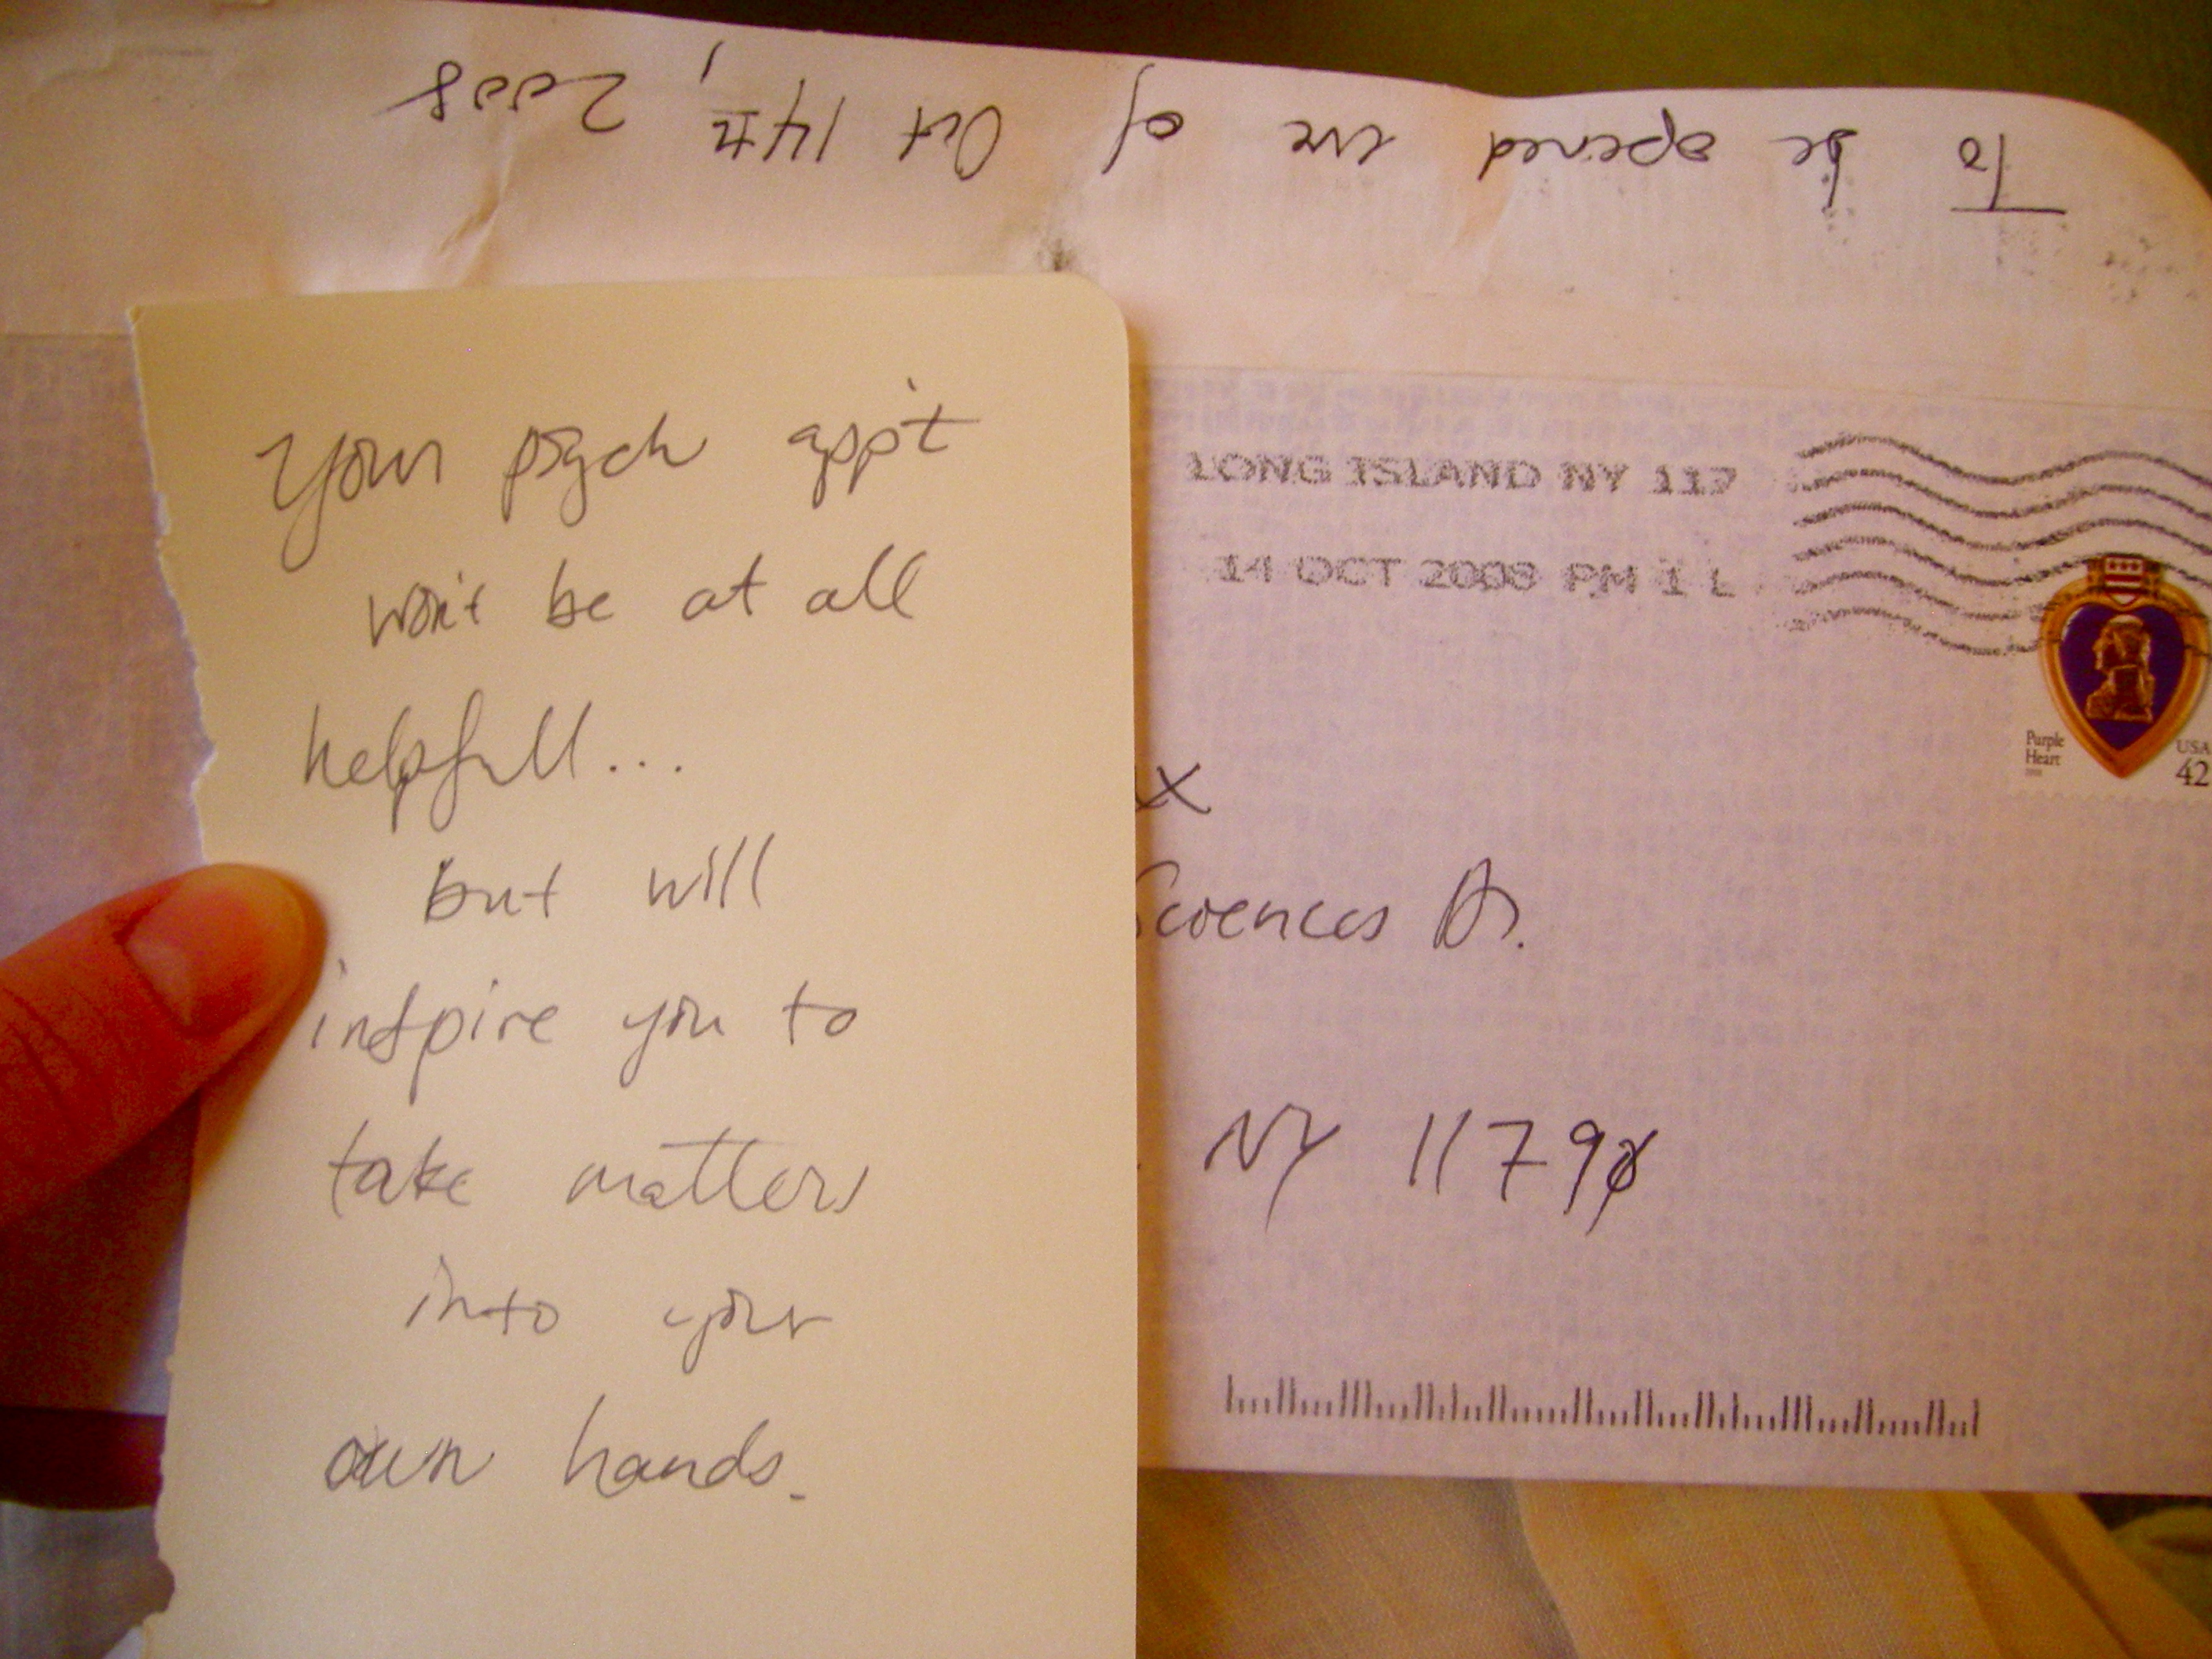 To be opened eve of Oct 14th, 2008
Your psych app't
won't be at all
helpfull...
but will
inspire you to
take matters
into your
own hands.
LONG ISLAND NY 117
14 OCT 2008 PM 1 L
Purple
Heart
USA
42
x
Sciences Dr.
NY 11790